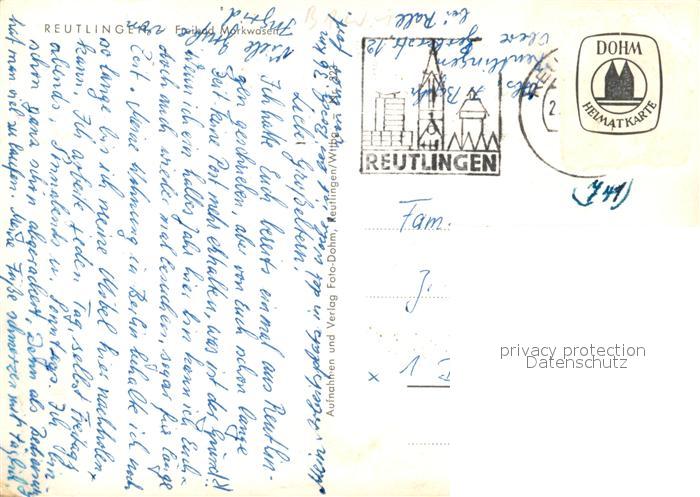 REUTLINGEN Freibad Markwasen
Aufnahmen und Verlag Foto-Dohm, Reutlingen/Wttbg.
Nr. 923
Liebe Großeltern!
Ich hatte Euch bereits einmal aus Reutlin-
gen geschrieben, aber von Euch schon lange
Zeit keine Post mehr erhalten, was ist der Grund?
Wenn ich ein halbes Jahr hier bin kann ich Euch
doch auch wieder mal besuchen, sogar für lange
Zeit. Meine Wohnung in Berlin behalte ich noch
so lange bis ich meine Möbel hier nachholen
kann. Ich arbeite jeden Tag, selbst Freitags
abends, Sonnabends u. Sonntags. Ich bin oft
schon ganz schön abgerackert, denn als Bedienung
hat man viel zu laufen. Meine Füße schmerzen mir täglich
Viele Grüße von
Ingrid.
Reutlingen
Obere
REUTLINGEN
DOHM
HEIMATKARTE
(741)
Fam.
J.
x 1
privacy protection
Datenschutz